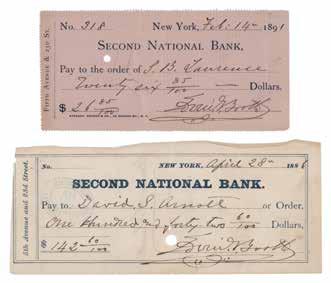 FIFTH AVENUE & 23D ST.
No. 318 New York, Feb: 14th 1891
SECOND NATIONAL BANK,
Pay to the order of S. B. Lawrence
Twenty six 35/100 Dollars.
$ 26 35/100 Edwin Booth
5th Avenue and 23rd Street.
No. NEW YORK, April 28th 1886
SECOND NATIONAL BANK.
Pay to David S. Arnott or Order.
One Hundred and forty two 60/100 Dollars,
$ 142 60/100 Edwin Booth